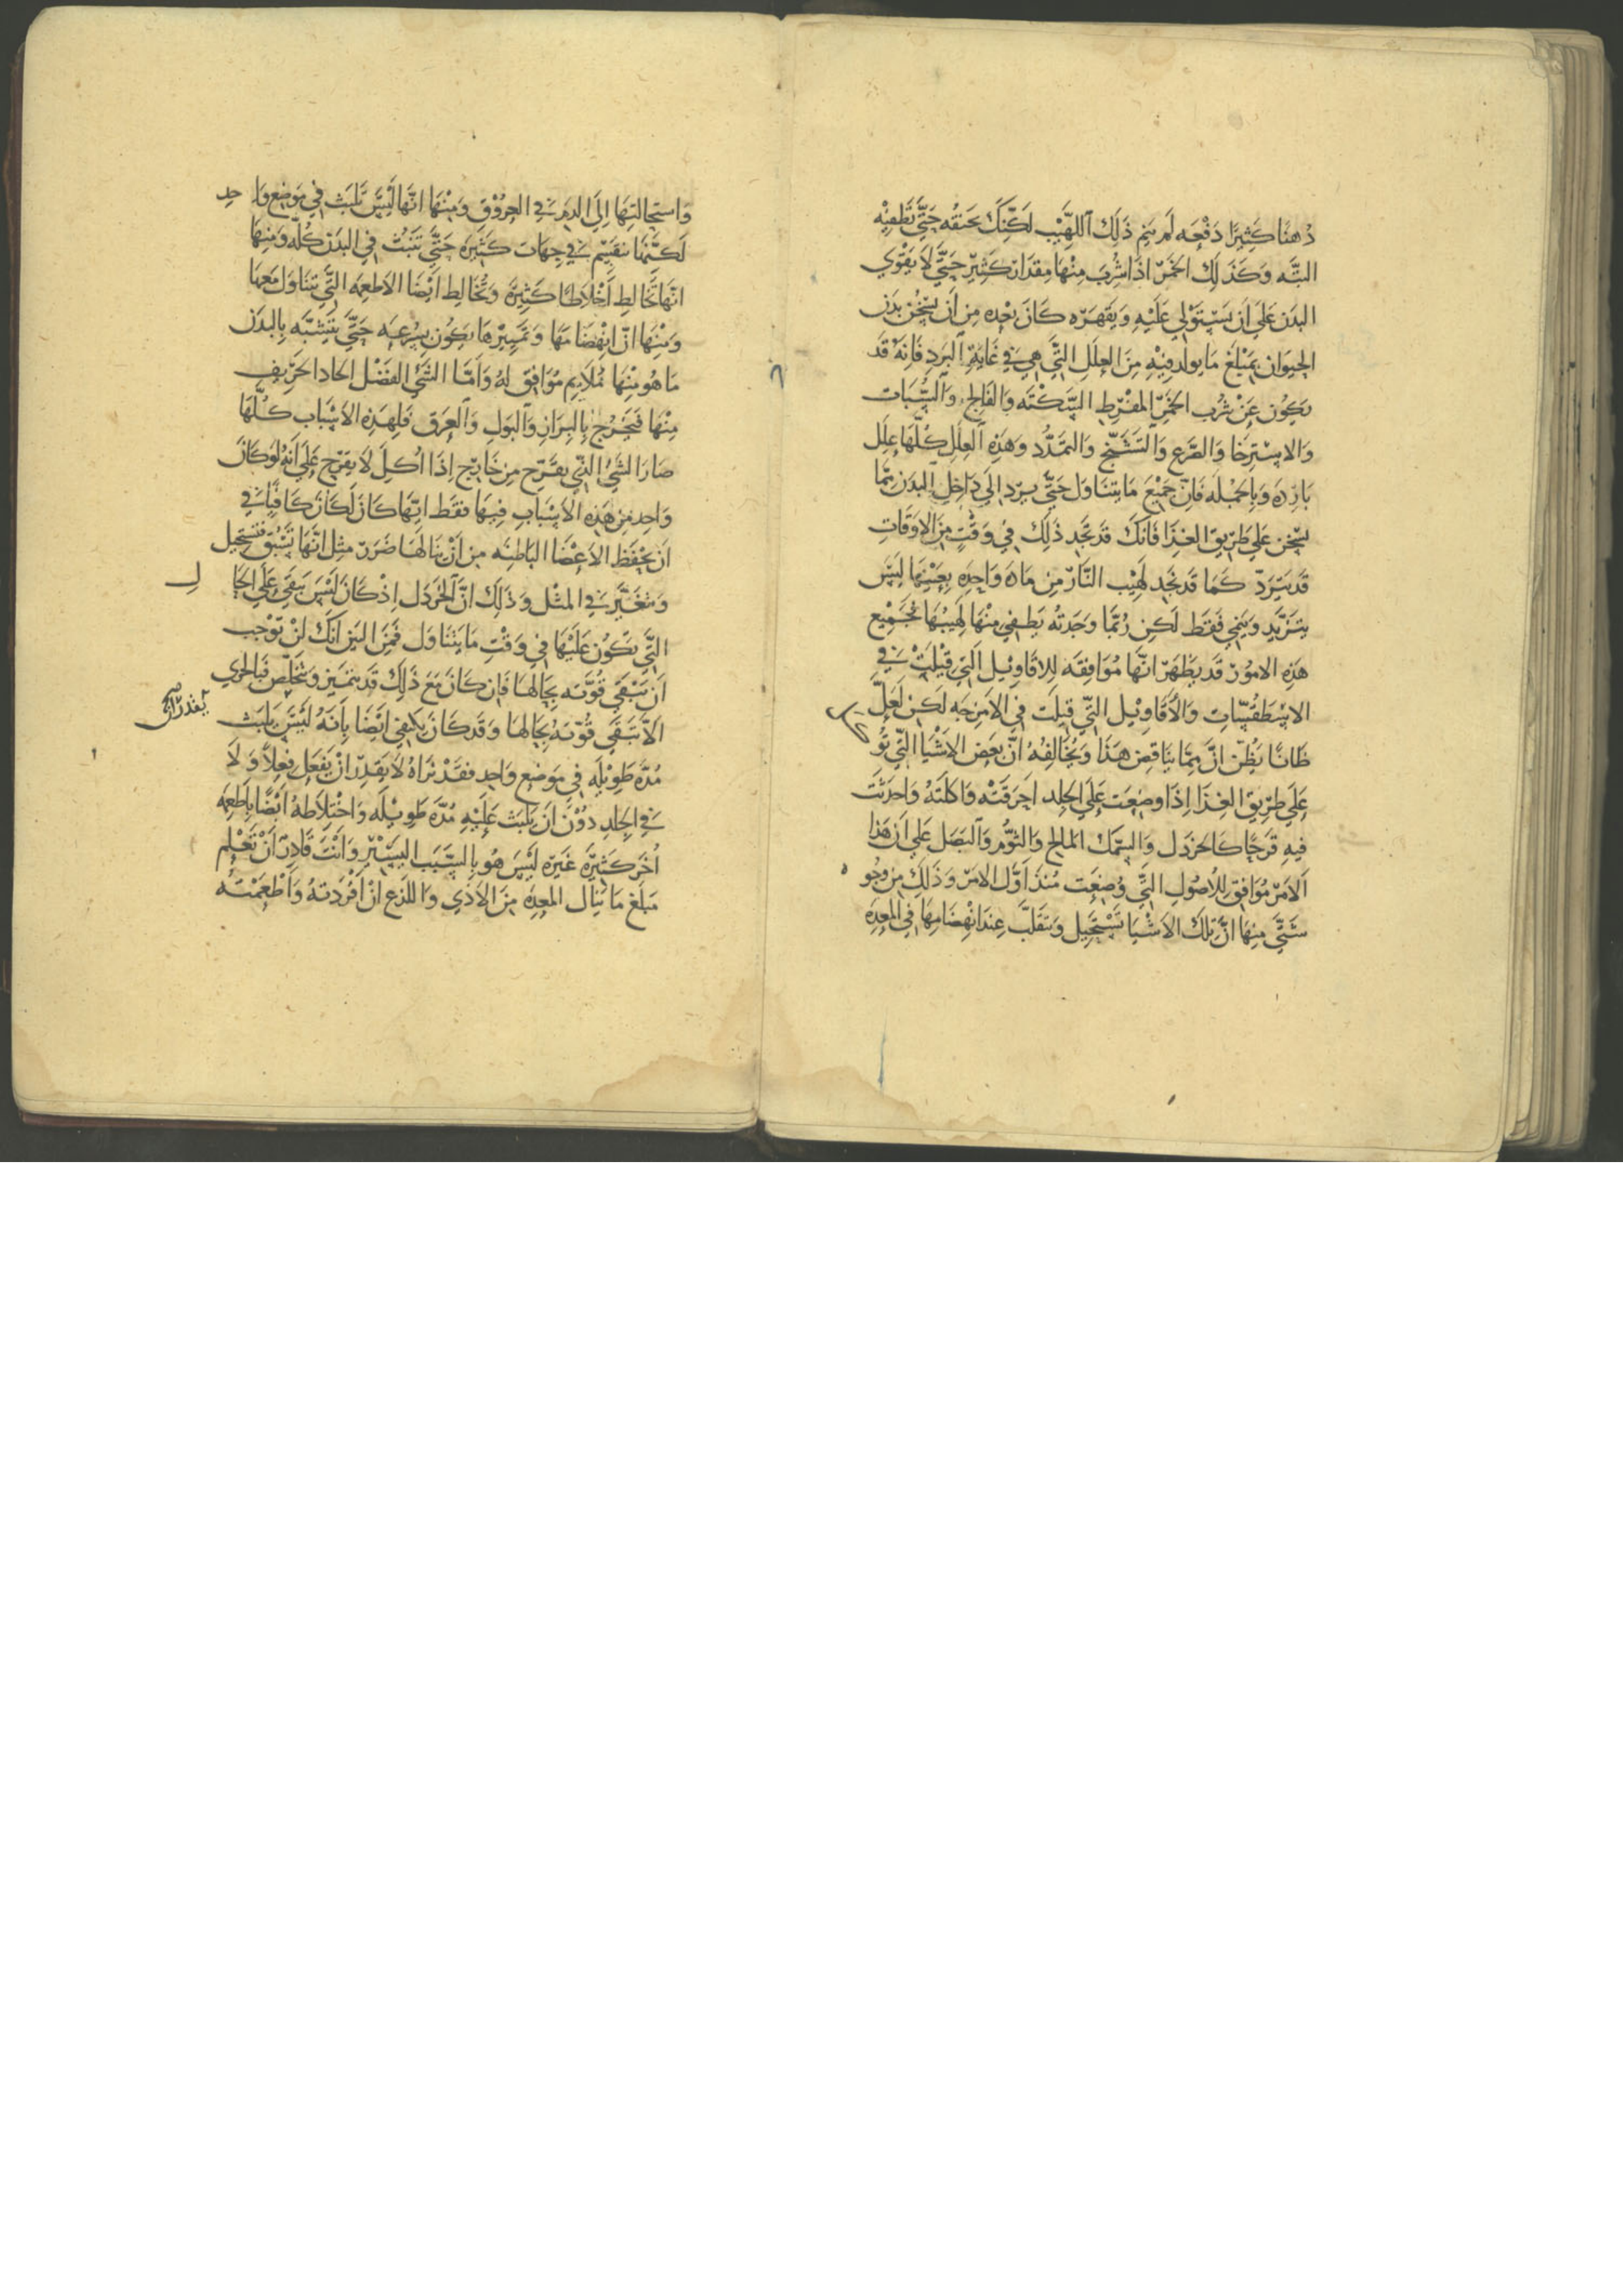 دُهنًا كَثِيرًا دَفْعَه لَم يَنِم ذَلِكَ اللَّهَيْب لَكِنَّكَ تخنقُه حَتَّي تُطْفِيْه
البتَّه وَكَذَلِكَ الخَمْرُ اذَا شُرِبَ مِنْهَا مِقدَارٌ كَثِيرٌ حَتَّي لَا يَقْوَي
البدَن عَلَي اَن يَسْتَوْلي عَلَيْهِ وَيَقهَرَه كَانَ بعْدِه مِن اَن يُسْخُن بدَن
الحيوَان بمَبْلَغ مَا يولد فِيْهِ مِنَ العِلَلِ التَّي هِيَ فِي غَايَةِ البَرد فَانَّهُ قَد
يَكُون عَنْ شُرْب الخَمْرِ المفْرِط السَّكْتَه وَالفَالِج وَالسُّبَات
وَالاسْتِرخَا وَالصَّرع وَالتَشَنُّج وَالتمَدُّد وَهَذِه العِلَل كُلّهَا عِلَل
بَارِدَه وَبِالجُمْله فَاِنَّ جَمْيْعَ مَا يتنَاوَل حَتَّي يرد اِلَي دَاخِل البدَن مِمَّا
يُسْخن عَلَي طَرِيق الغِذَا فَانَكَ قَد تجَد ذَلِكَ فِي وَقْتٍ مِنَ الاوقَاتِ
قَد يُبرِّد كَمَا قَد نجَد لَهِيْب النَّار مِن مَادَه وَاحِدَه بِعَيْنِهَا لَيْسَ
يتزَيَّد وَينمِي فَقَط لَكِن رُبَّمَا وَجَدتُه يطفي مِنْهَا لَهِيْبُهَا فَجَمْيِع
هَذِه الامُوْر قَد يظْهَر انَّهَا مُوَافِقَه لِلاقَاوِيْل الَّتي قِيْلَتْ فِي
الاسْطَقُسَّاتِ وَالاقَاوِيْل التَّي قِيلَت فِي الامْزِجَه لَكِن لَعَلّ
ظَانًّا يظُنّ انَّ مِمَّا ينَاقِض هَذَا وَيُخَالِفُهُ انَّ بعَض الاشْيَا التَّي تُو كل
عَلَي طَرِيق الغِذَا اِذَا وضِعَت عَلَي الجلد اَحرَقَتْه وَاكلَتَهُ وَاحدَثَت
فِيهِ قَرحًا كَالخردَل وَالسَّمَك المَالِح وَالثوْم وَالبَصَل عَلي اَن هَذا
الامْر مُوَافِق للاُصُوْل التَّي وُضِعَت مُنذ اَوّل الامْر وَذَلِكَ مِن وجُو ه
شَتَّي مِنهَا انَّ تِلكَ الاشْيَا تَسْتَحِيْل وَتنقَلب عِندَ انْهِضَامِهَا فِي المعِدَه
وَاسْتِحَالتِهَا اِلَي الدَمْ فِي العُرُوْق وَمِنْهَا انَّهَا لَيْسَ تَلبَث فِي مَوضِع وَا حِد
لَكِنَّهَا تنقَسِم فِي جِهَات كَثِيرَه حَتَّي تنبثّ فِي البدَن كُلّه وَمِنهَا
انَّهَا تخَالِط اَخْلَاطًا كَثِيْرَة وَتُخَالِط اَيْضًا الاطعِمَه التَّي تتنَاوَل مَعهَا
وَمِنْهَا انّ انْهِضَامَهَا وَتَمييْزهَا يكُون بسُرعَه حَتَّي يتَشَبَّه بِالبدَن
مَا هُو مِنْهَا مُلَايِم مُوَافِق لَهُ وَامَّا الشَّيْ الفَضْل الحَاد الحَرِّيف
مِنْهَا فَيَخرُج بِالبِرَاز وَالبَول وَالعَرَق فَلِهَذِه الاسْبَاب كُلّهَا
صَارَ الشَّيُ الذِّي يقَرِّح مِن خَارِج اِذَا اُكِلَ لا يقرِّح عَلَي انَهُ لَو كَانَ
وَاحِد مِن هَذِه الاَسْبَاب فِيهَا فَقَط ايُّهَا كَانَ لَكَانَ كَافيًا فِي
اَن يحْفَظ الاَعْضَا البَاطِنَه مِن اَنْ ينَالهَا ضَرَر مِثل انَّهَا تَسْبِق فَتستَحِيْل
وَتتغَيَّر فِي المثْل وَذَلِكَ انّ الخَردَل اِذْ كَانَ لَيْسَ يَبقَي عَلَي الحَا ل
التَّي يَكُون عَلَيْهَا فِي وَقْتِ مَا يتنَاوَل فَمِنَ البين انَكَ لَنْ توْجب
اَن تَبْقَي قُوّته بِحَالهَا فَاِن كَانَ مَعَ ذَلِكَ قَد يتمَيز وَيتخَلَّص فَبِالحري
الاّ تَبقَي قُوّتهُ بِحَالهَا وَقَد كَانَ يَكتفِي اَيْضًا بِاَنَهُ لَيْسَ يَلبَث
مُدَّه طَوِيْلَه فِي مَوضِع وَاحِد فَقَدْ تَرَاهُ لَا يَقدِر اَنْ يَفعَل فِعلاً وَلَا
فِي الجِلد دُوْنَ اَن يَلبَث عَلَيْهِ مُدَّه طَوِيْلَه وَاخْتِلَاطهُ اَيْضًا بِاَطعِمَه
اُخَر كَثِيْرَة غَيره لَيْسَ هُو بِالسَّبَب اليَسَيْر وَانْتَ قَادِر اَنْ تَعْلم
مَبلَغ مَا ينَال المعِدَه مِنَ الاذَي وَاللذع اِنْ اَفرَدتهُ وَاَطْعَمْتهُ